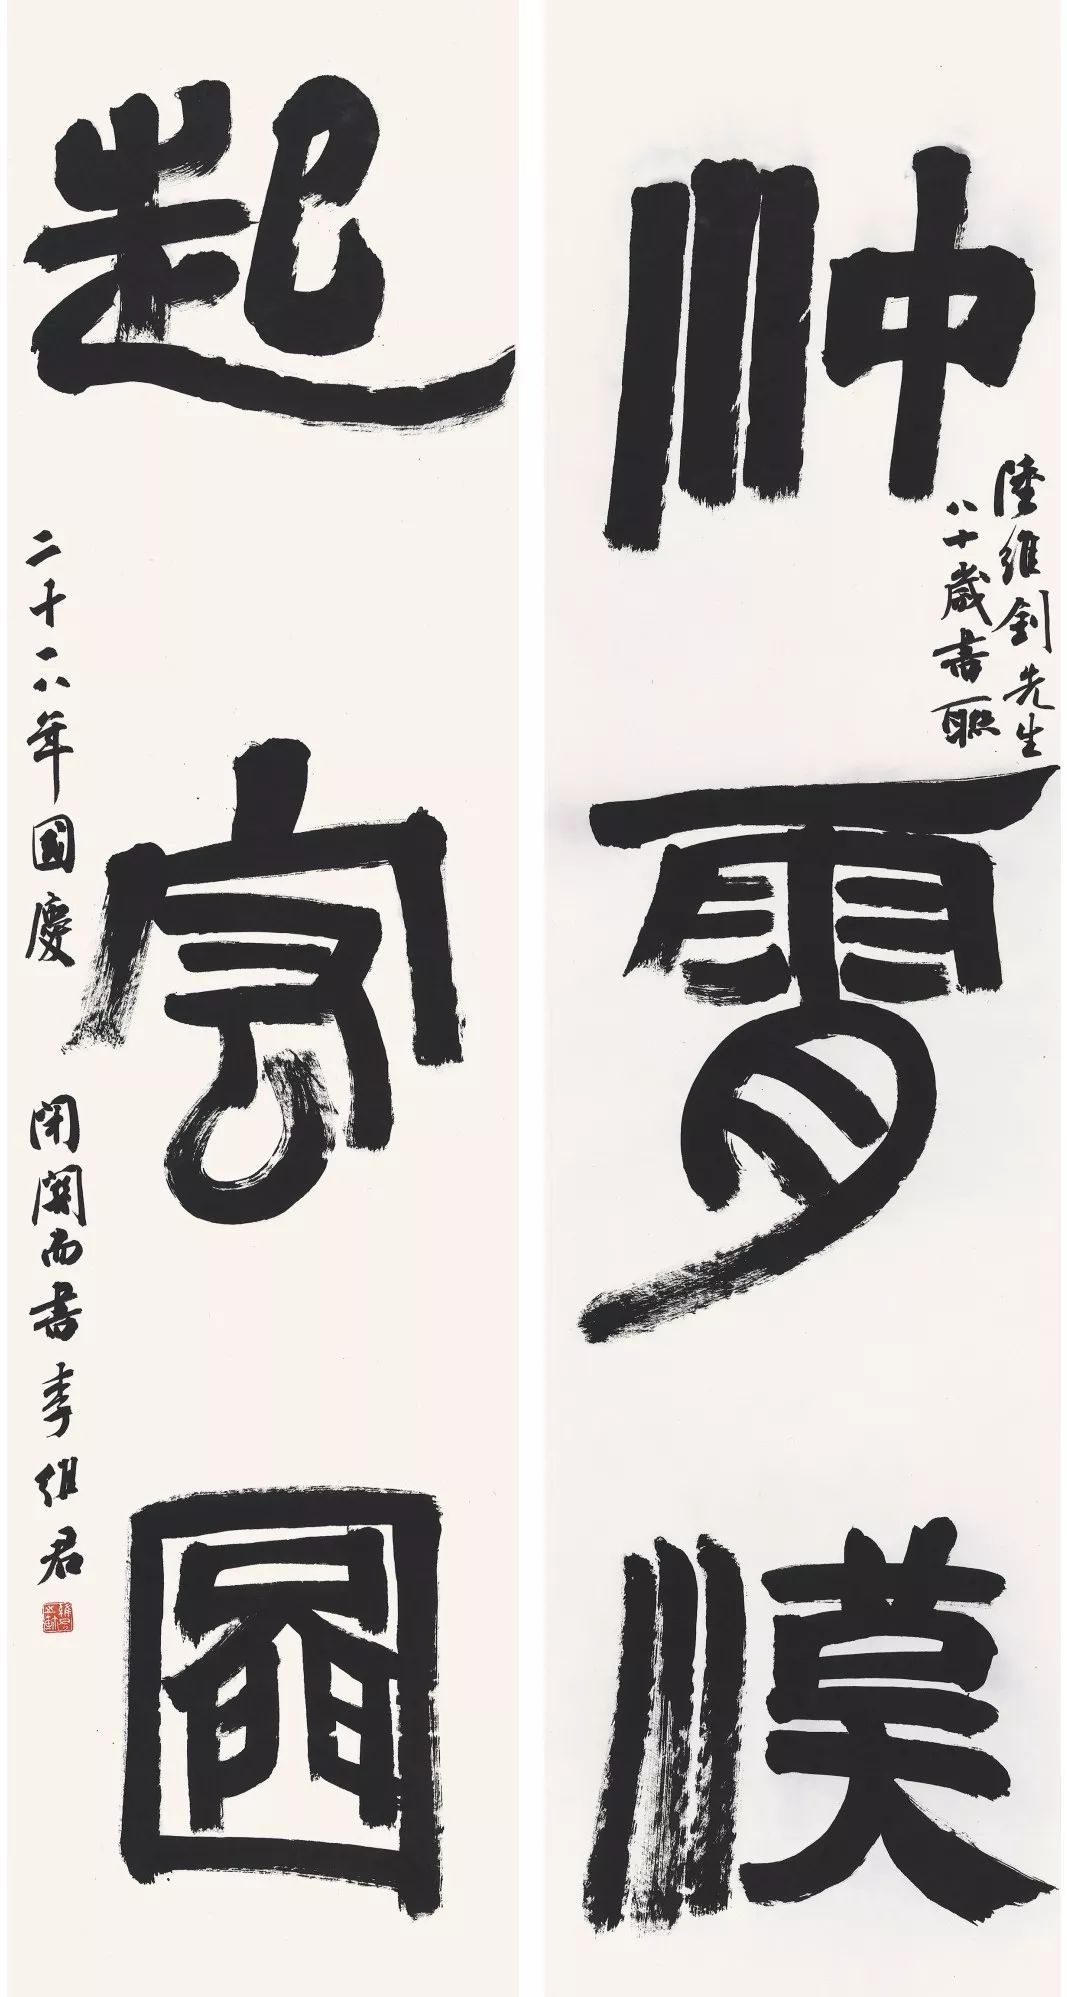 沖霄漢
陸維釗先生
八十歲書聯
起宏圖
二十一八年國慶 閉關而書李維君